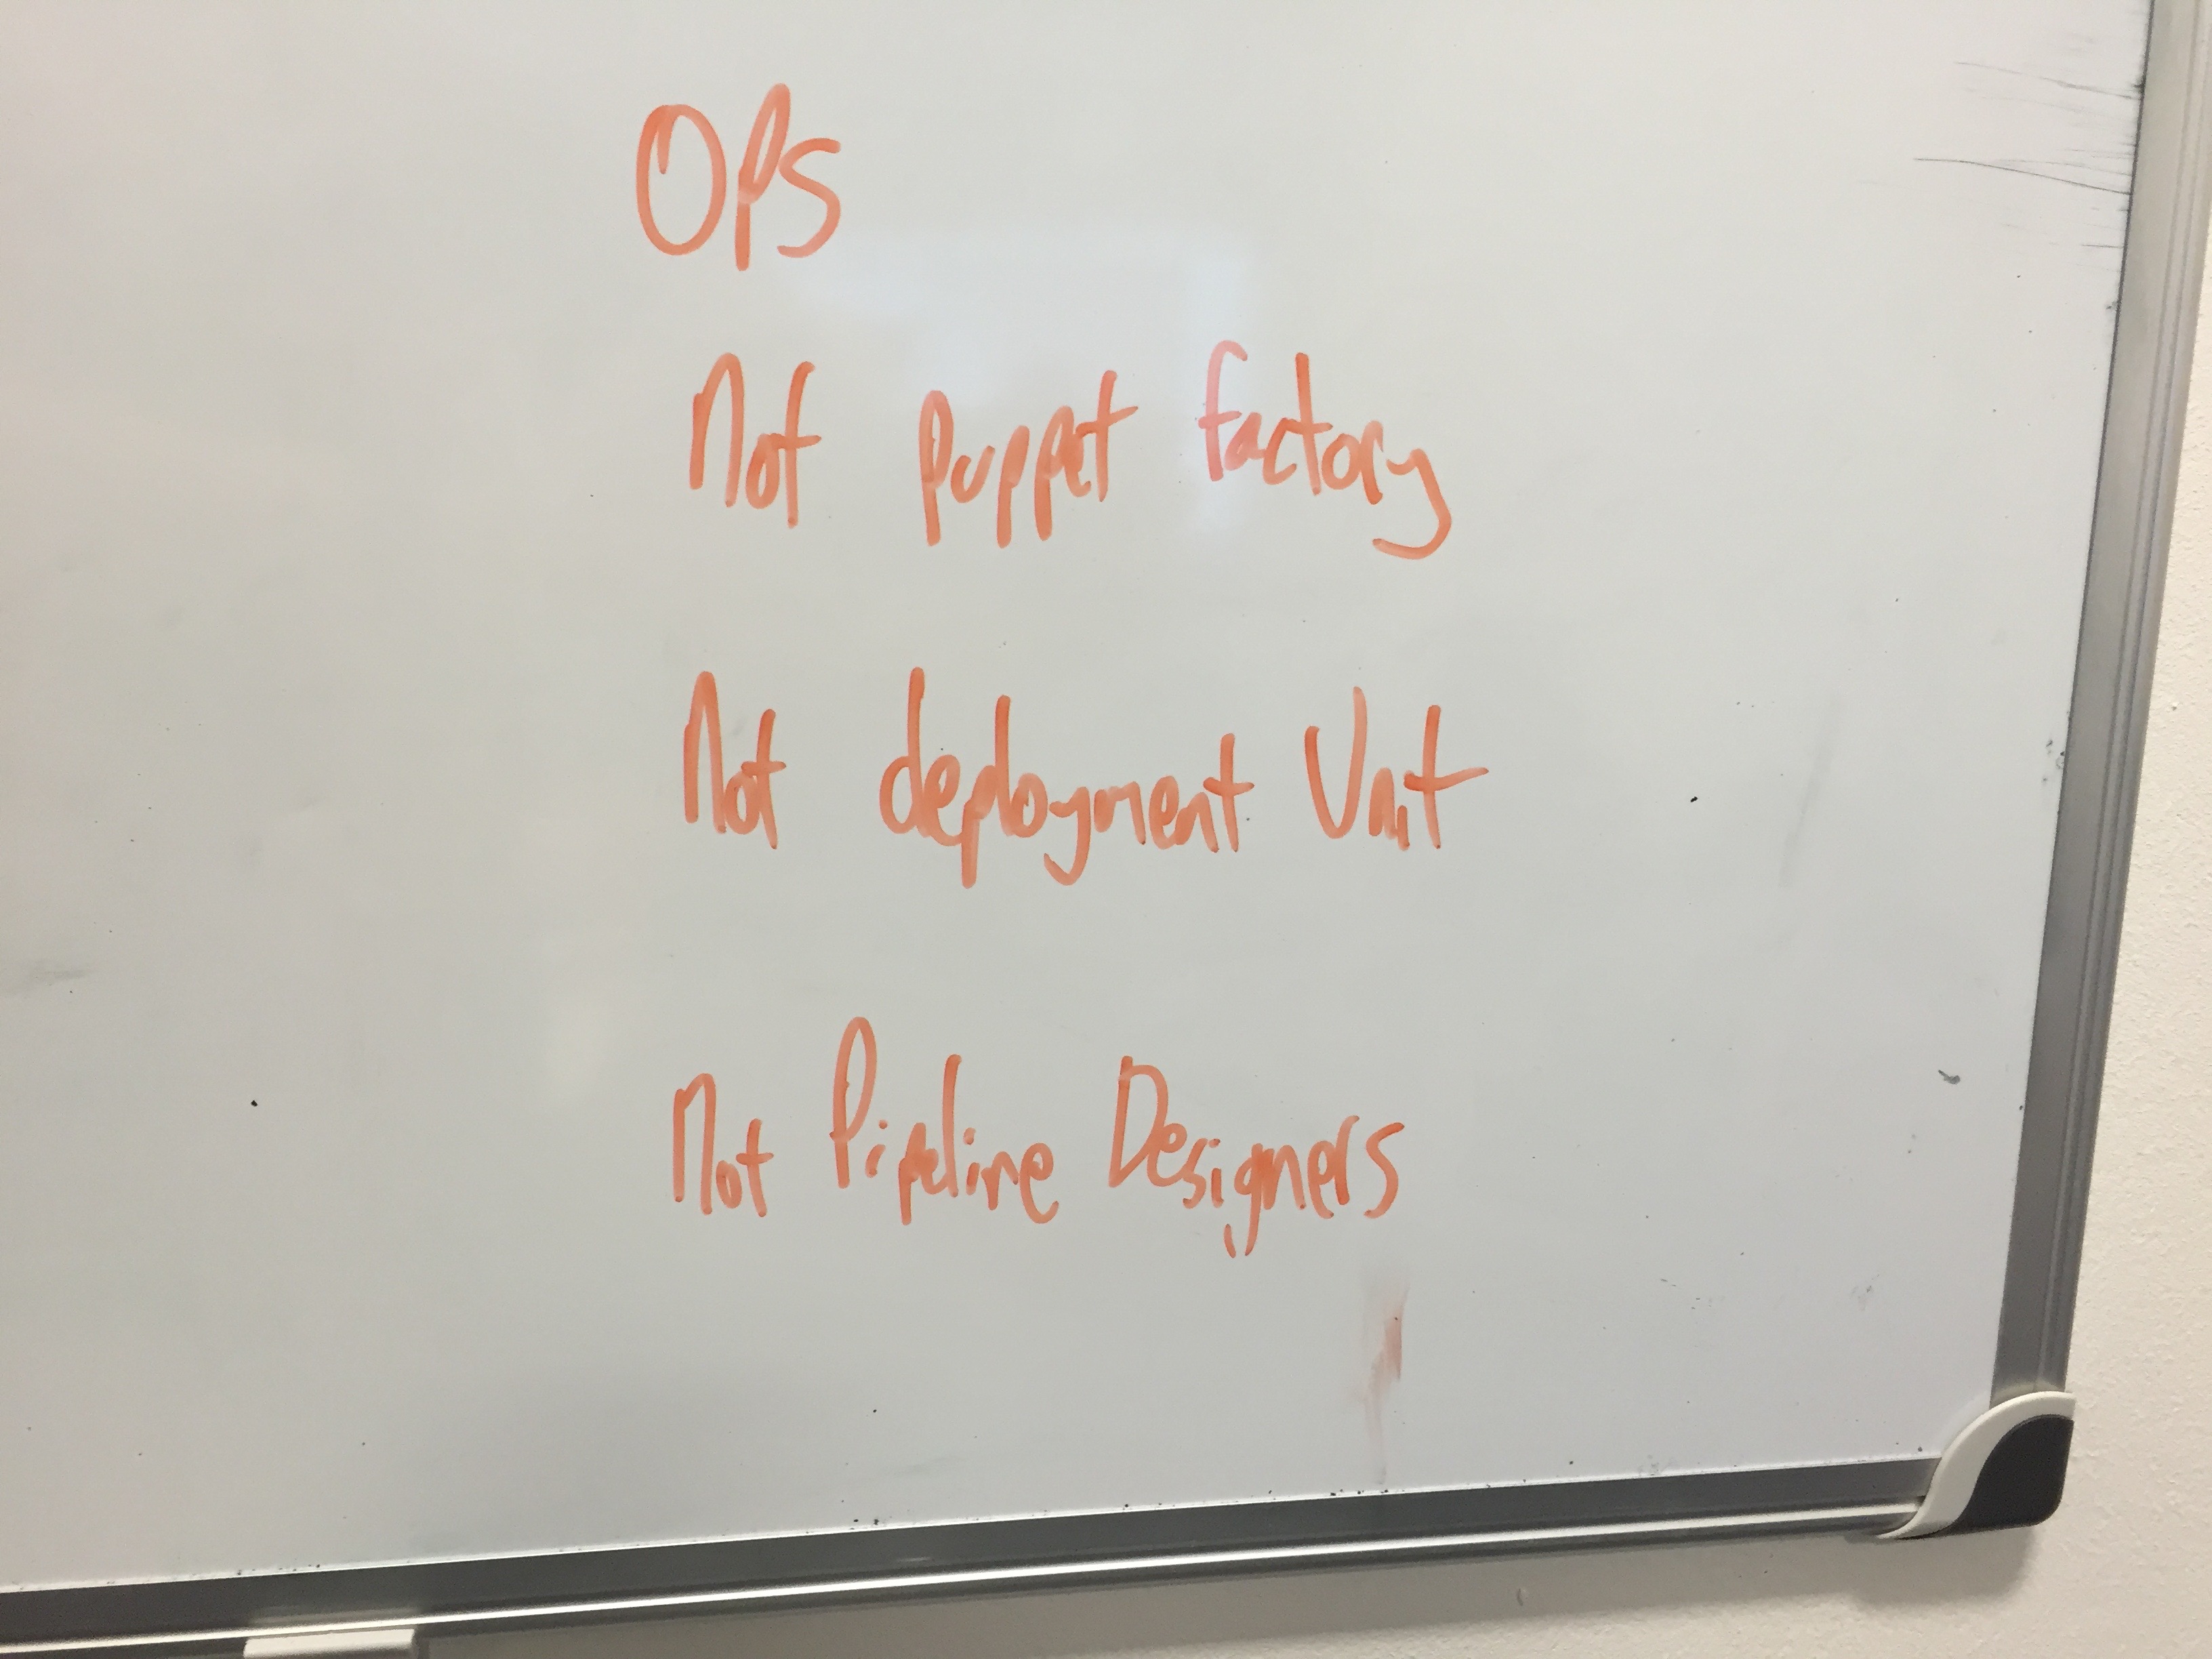 OPS
Not puppet factory
Not deployment Unit
Not Pipeline Designers